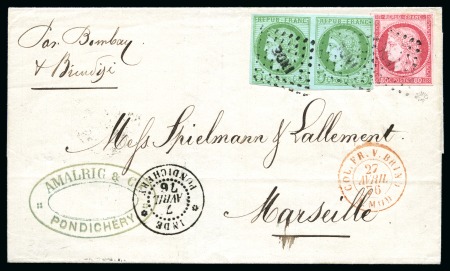 Par Bombay
& Brindisi
REPUB·FRANC·
REPUB·FRANC·
Mess Spielmann & Lallement
Marseille
AMALRIC & C
PONDICHERY
INDE
7
AVRIL
76
PONDICHERY
COL. FR. V. BRIND
27
AVRIL
76
MOD